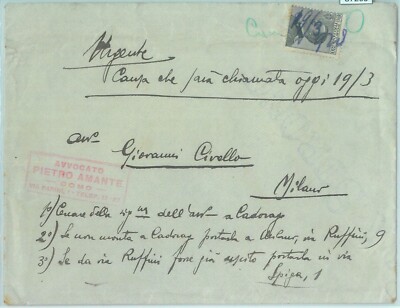 Urgente
Causa che sarà chiamata oggi 19/3
avv.
Giovanni Civello
Milano
AVVOCATO
PIETRO AMANTE
COMO
1º) della sig.na dell'avv. a Cadorago
2º) Se non monta a Cadorago portarla a Milano, via Ruffini, 9
3º) Se da via Ruffini fosse già uscito portarla in via
Spiga, 1